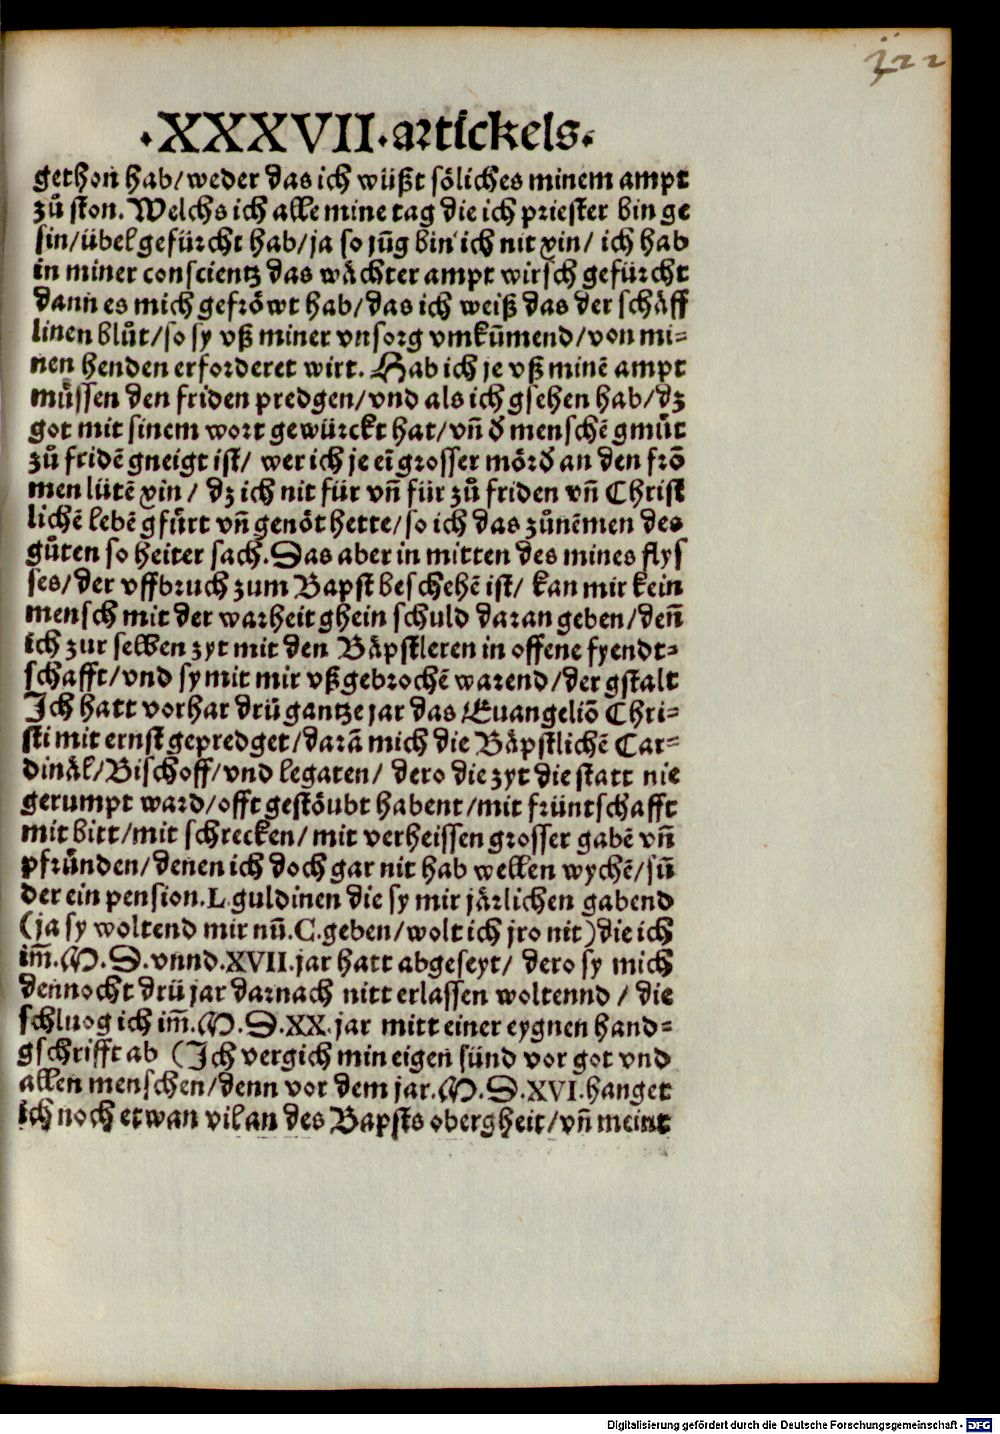 122
·XXXVII·artickels·
gethon hab/weder das ich wüßt söliches minem ampt
zů ston. Welchs ich alle mine tag die ich priester bin ge
sin/übel gefürcht hab/ja so jũg bin ich nit xin/ ich hab
in miner conscientz das wächter ampt wirsch gefürcht
dann es mich gefröwt hab/das ich weiß das der schäff
linen blůt/so sy vß miner vnsorg vmkũmend/von mi-
nen henden erforderet wirt. Hab ich je vß minẽ ampt
müssen den friden predgen/vnd als ich gsehen hab/dz
got mit sinem wort gewürckt hat/vñ d menschẽ gmüt
zů fridẽ gneigt ist/ wer ich je eĩ grosser mörd an den frõ
men lütẽ xin/ dz ich nit für vñ für zů friden vñ Christ
lichẽ lebẽ gfürt vñ genöt hette/so ich das zůnẽmen des
gůten so heiter sach. Das aber in mitten des mines flys
ses/der vffbruch zum Bapst beschehẽ ist/ kan mir kein
mensch mit der warheit ghein schuld daran geben/deñ
ich zur selben zyt mit den Bäpstleren in offene fyendt-
schafft/vnd sy mit mir vßgebrochẽ warend/der gstalt
Ich hatt vorhar drü gantze jar das Euangeliõ Chri-
sti mit ernst gepredget/darã mich die Bäpstlichẽ Car-
dinäl/Bischoff/vnd legaten/ dero die zyt die statt nie
gerumpt ward/offt gestöubt habent/mit früntschafft
mit bitt/mit schrecken/mit verheissen grosser gabẽ vñ
pfründen/denen ich doch gar nit hab wellen wychẽ/sũ
der ein pension.L.guldinen die sy mir järlichen gabend
(ja sy woltend mir nũ.C.geben/wolt ich jro nit)die ich
im̃.M.D.vnnd.XVII.jar hatt abgeseyt/ dero sy mich
dennocht drü jar darnach nitt erlassen woltennd / die
schluog ich im̃.M.D.XX.jar mitt einer eygnen hand-
gschrifft ab (Ich vergich min eigen sünd vor got vnd
allen menschen/denn vor dem jar.M.D.XVI.hanget
ich noch etwan vil an des Bapsts obergheit/vñ meint
Digitalisierung gefördert durch die Deutsche Forschungsgemeinschaft - DFG